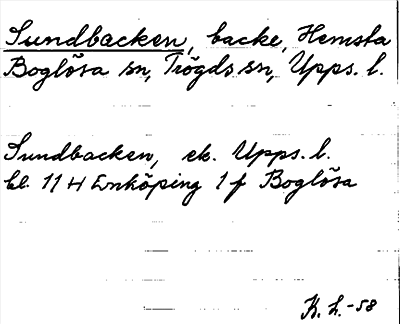 Sundbacken, backe, Hemsta
Boglösa sn, Trögds sn, Upps. l.
Sundbacken, ek. Upps. l.
bl. 11 H Enköping 1 f Boglösa
K. L. -58